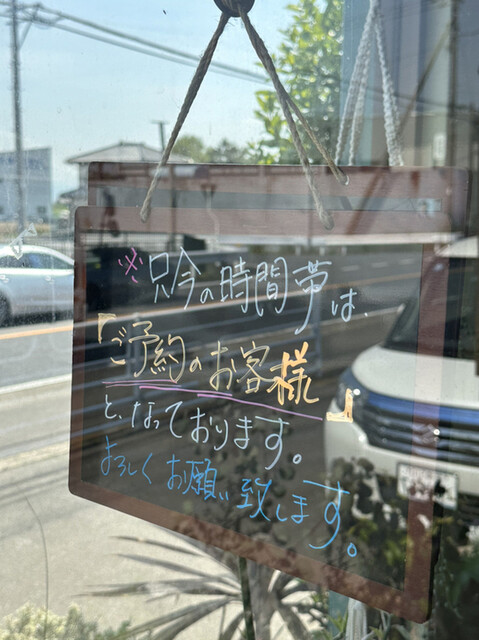 ※只今の時間帯は、
『ご予約のお客様』
と、なっております。
よろしくお願い致します。